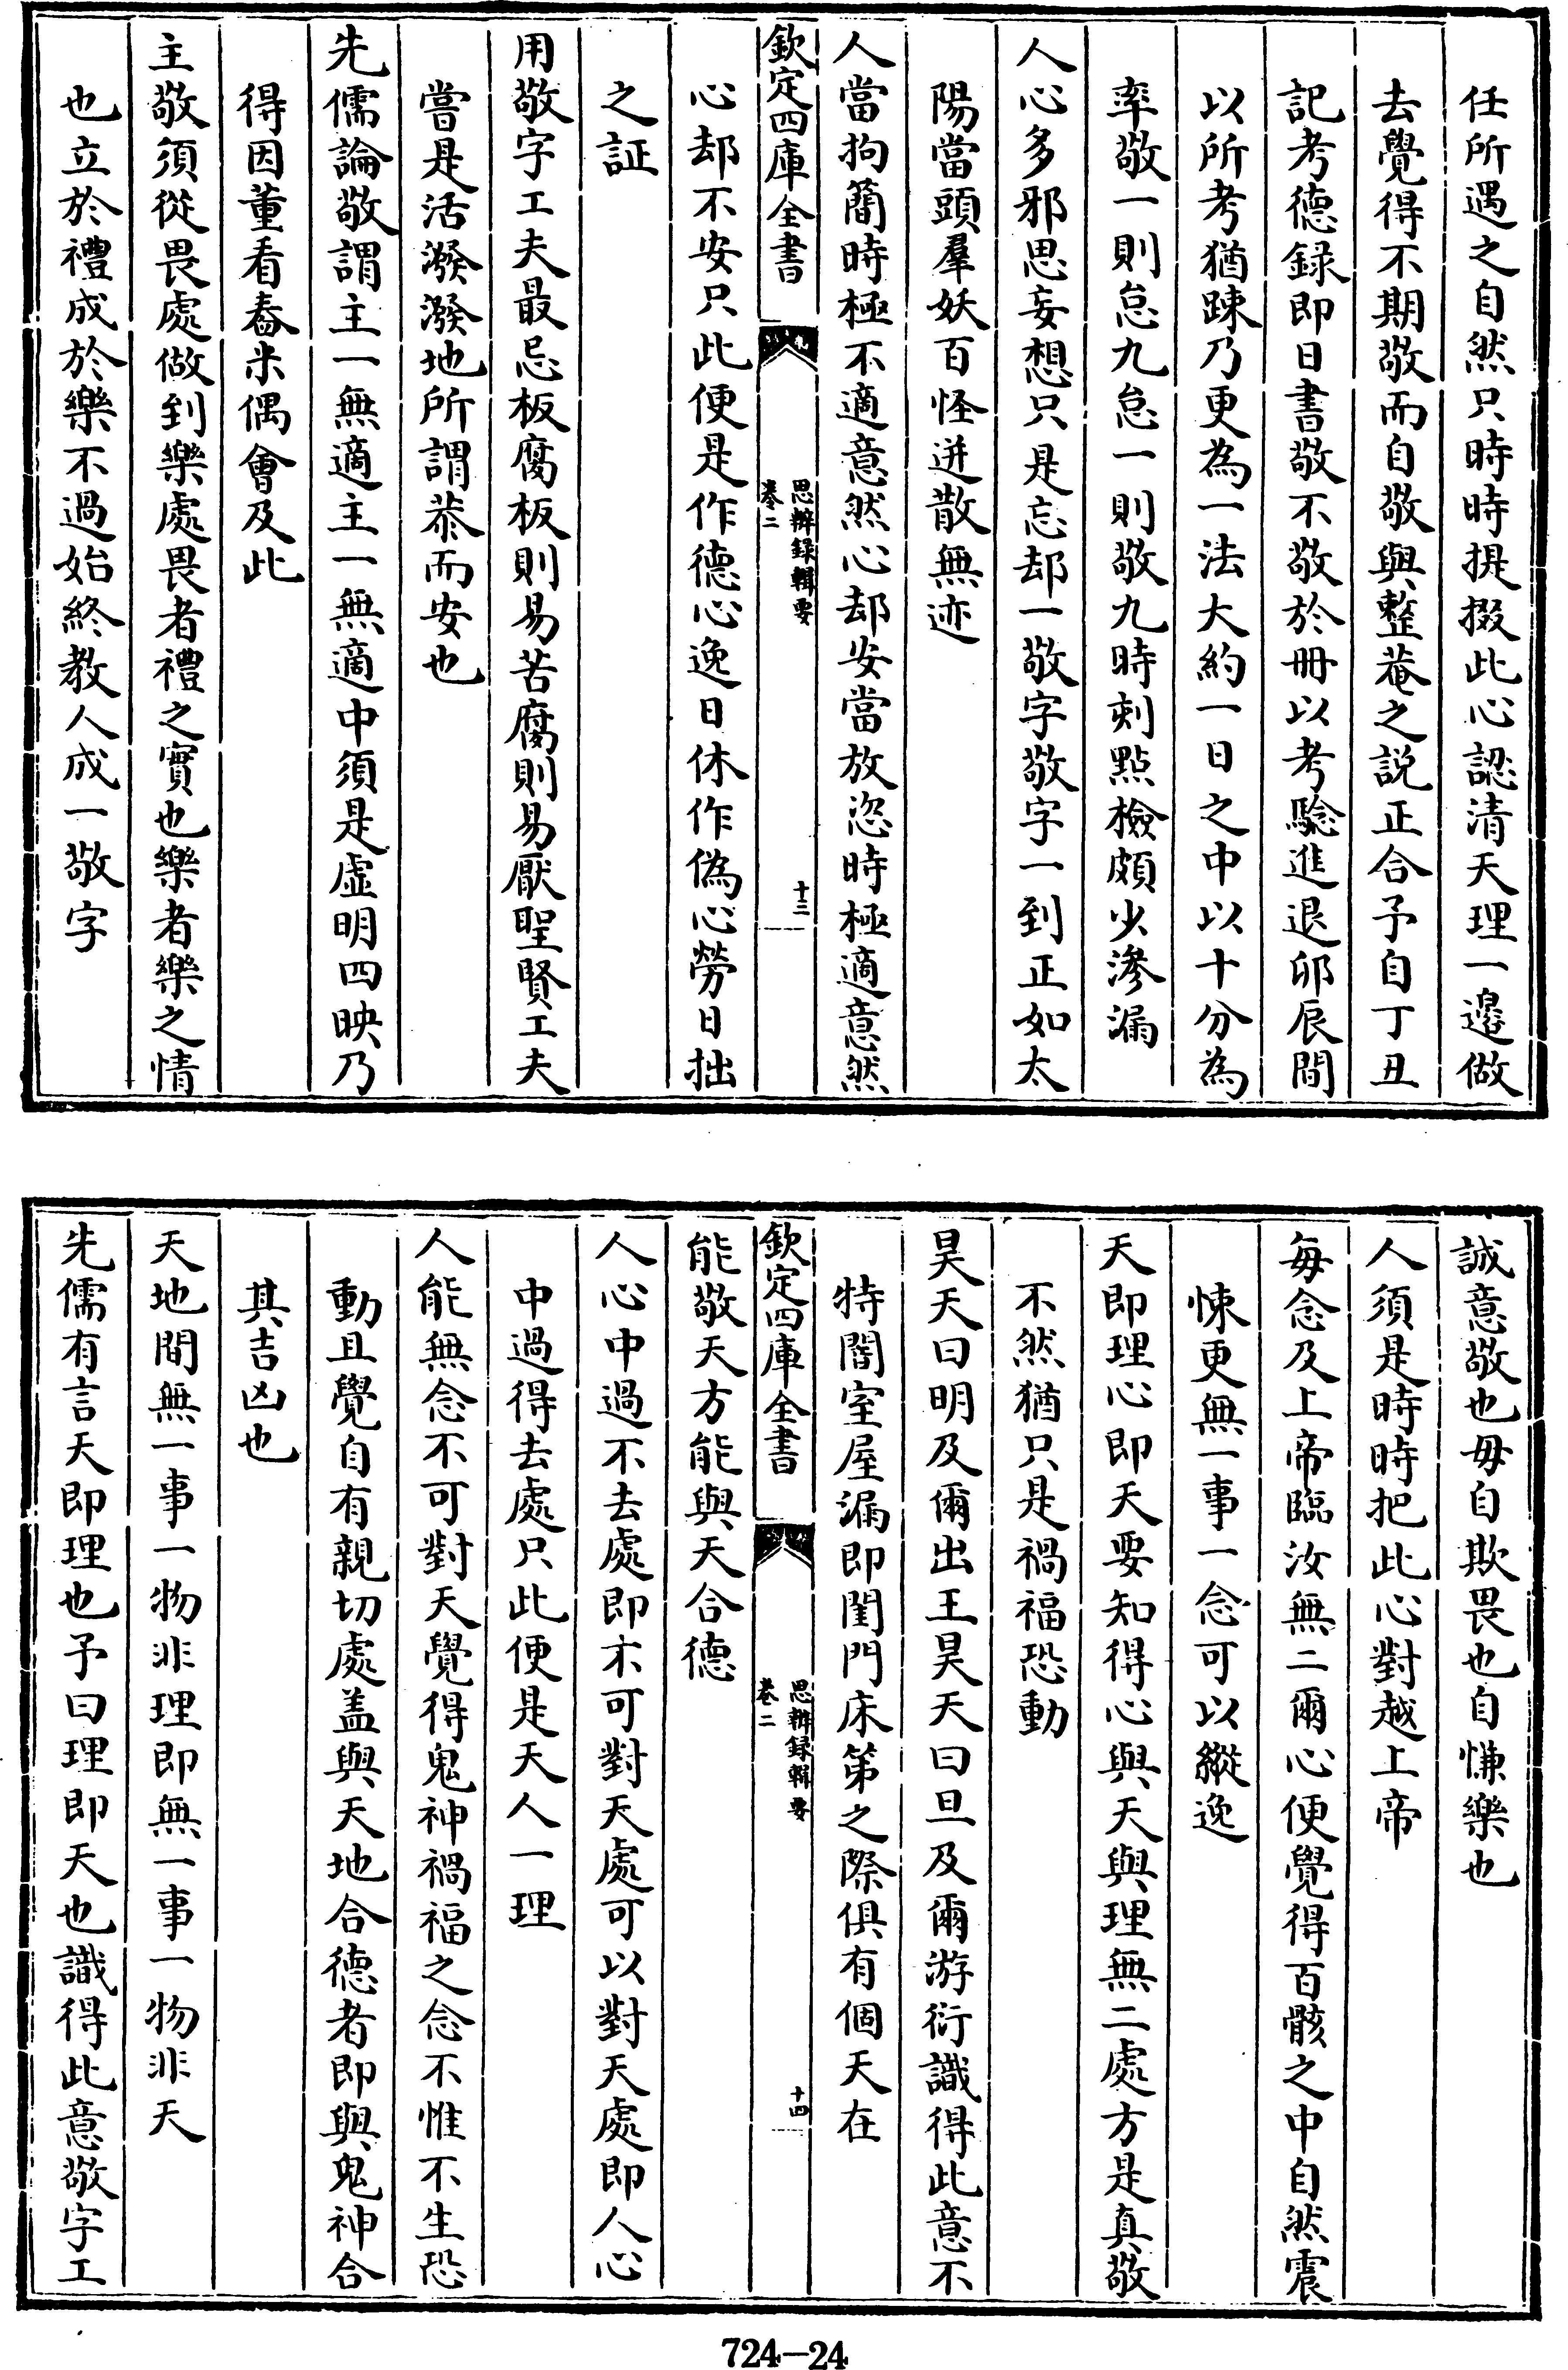 任所遇之自然只時時提掇此心認清天理一邊做
去覺得不期敬而自敬與整菴之説正合予自丁丑
記考德録即日書敬不敬於冊以考驗進退卯辰間
以所考猶踈乃更為一法大約一日之中以十分為
率敬一則怠九怠一則敬九時刻點檢頗少滲漏
人心多邪思妄想只是忘却一敬字敬字一到正如太
陽當頭羣妖百怪迸散無迹
人當拘簡時極不適意然心却安當放恣時極適意然
欽定四庫全書
思辨録輯要
卷二
十三
心却不安只此便是作德心逸日休作偽心勞日拙
之証
用敬字工夫最忌板腐板則易苦腐則易厭聖賢工夫
嘗是活潑潑地所謂恭而安也
先儒論敬謂主一無適主一無適中須是虛明四映乃
得因董看舂米偶會及此
主敬須從畏處做到樂處畏者禮之實也樂者樂之情
也立於禮成於樂不過始終教人成一敬字
誠意敬也毋自欺畏也自慊樂也
人須是時時把此心對越上帝
每念及上帝臨汝無二爾心便覺得百骸之中自然震
悚更無一事一念可以縱逸
天即理心即天要知得心與天與理無二處方是真敬
不然猶只是禍福恐動
昊天曰明及爾出王昊天曰旦及爾游衍識得此意不
特闇室屋漏即閨門床第之際俱有個天在
欽定四庫全書
思辨録輯要
卷二
十四
能敬天方能與天合德
人心中過不去處即不可對天處可以對天處即人心
中過得去處只此便是天人一理
人能無念不可對天覺得鬼神禍福之念不惟不生恐
動且覺自有親切處盖與天地合德者即與鬼神合
其吉凶也
天地間無一事一物非理即無一事一物非天
先儒有言天即理也予曰理即天也識得此意敬字工
724-24